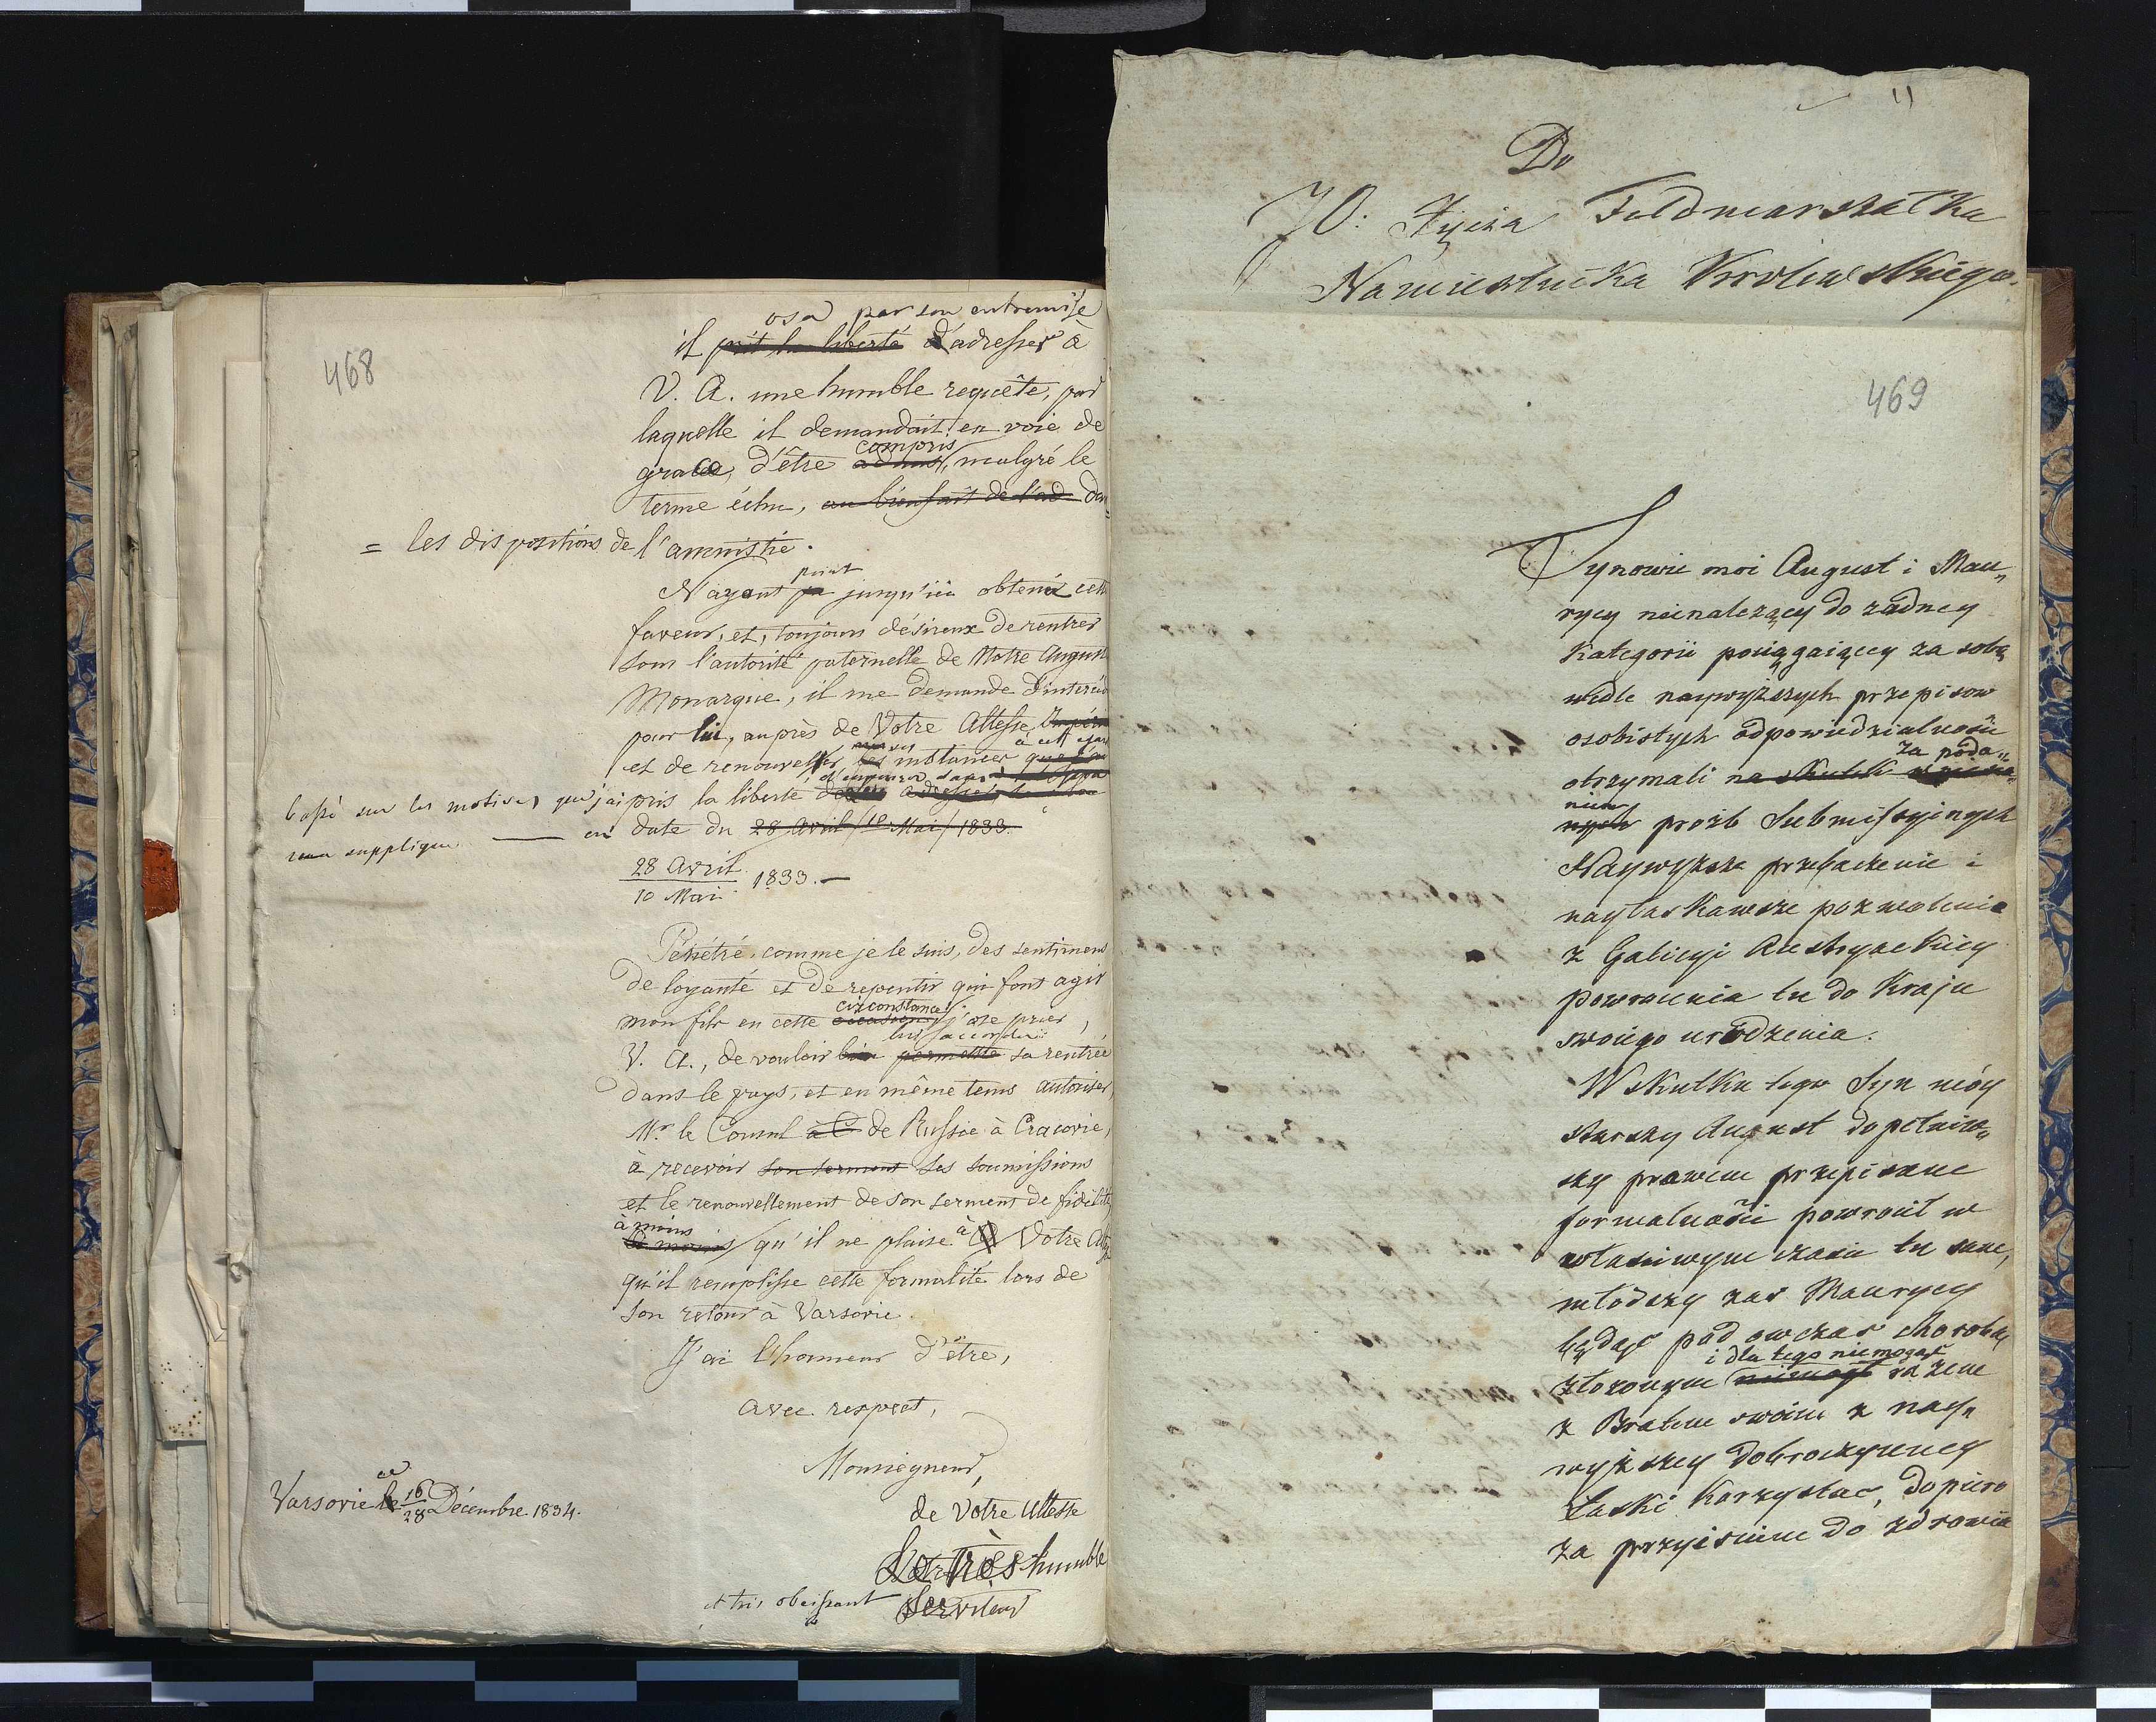 468
osa par son entremise
il prit la liberté d'adresser à
V. A. une humble requête, par
laquelle il demandait en voie de
compris
grace, d'être admis, malgré le
terme échu, au bienfait de l'ad dan=
= les dispositions de l'amnistie.
point
N'ayant pu jusqu'ici obtenu cette
faveur, et, toujours désireux de rentrer
sous l'autorité paternelle de Notre Auguste
Monarque, il me demande d'intercéd
pour lui, auprès de Votre Altesse
à cet égard
et de renouveller les instances que j'ai
basé sur les motives que j'ai pris la liberté
suppliques en date du 28 Avril/10 Mai/1833.
28 Avril
10 Mai 1833.—
Pénétré, comme je le suis, des sentimens
de loyauté et de repentir qui font agir
circonstance
mon fils en cette occasion, j'ose prier,
lui accorder
V. A., de vouloir bien permettre sa rentrée
dans le pays, et en même tems autoriser
Mr le Consul à C de Russie à Cracovie,
à recevoir son serment ses soumissions
et le renouvellement de son serment de fidélité
à moins
à moins qu'il ne plaise à Votre Altesse
qu'il remplisse cette formalité lors de
son retour à Varsovie.
J'ai l'honneur d'être,
avec respect,
Monseigneur,
de Votre Altesse
Varsovie le ce 16/28 Décembre 1834.
Le très humble
et très obeissant Serviteur
11
Do
JO: Xięcia Feldmarszałka
Namiestnika Krolewskiego.
469
Synowie moi August i Mau„
rycy nienależący do żadney
Kategorii pociągaiącey za sobą
wedle naywyższych przepisow
osobistych odpowiedzialności
za poda„
otrzymali na skutek
niem
prozb Submissyinych
Naywyższe przebaczenie i
nayłaskawsze pozwolenie
z Galicyi Austryackiey
powrocenia tu do Kraju
swoiego urodzenia.
W skutku tego Syn móy
starszy August dopełniw„
szy prawem przepisane
formalności powrocił w
właściwym czasie tu sam,
młodszy zas Maurycy
będąc pod owczas chorobą
i dla tego niemogąc
złożonym niemogł razem
z Bratem swoim z nay„
wyższey dobroczynney
Łaski korzystac, dopiero
za przyisciem do zdrowia